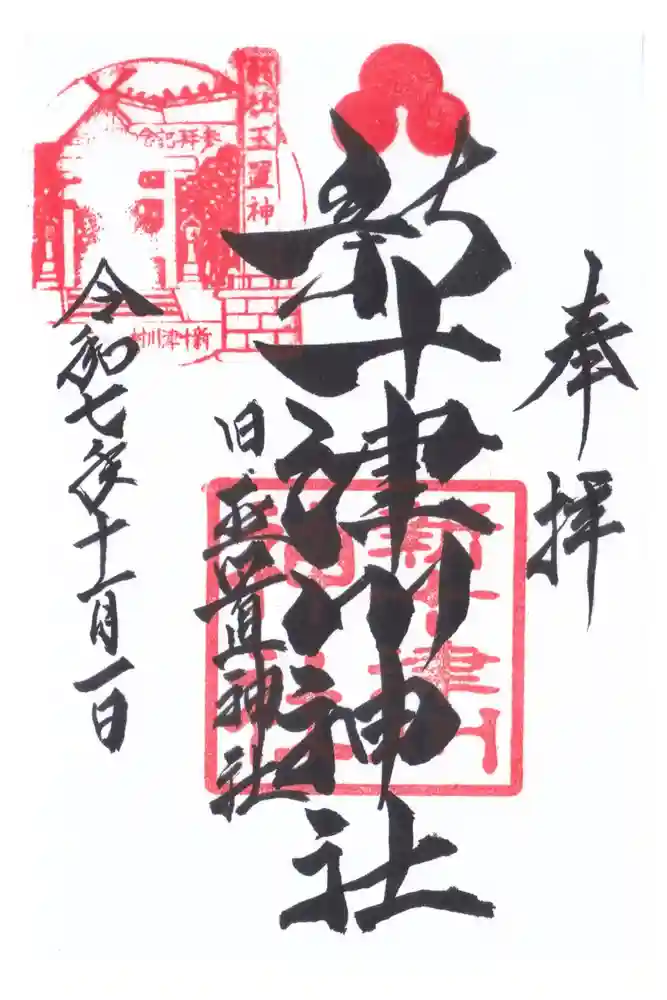 奉拝
新十津川神社
旧玉置神社
令和七年十一月一日
郷社玉置神
参拝記念
新十津川村
新十津川
神社